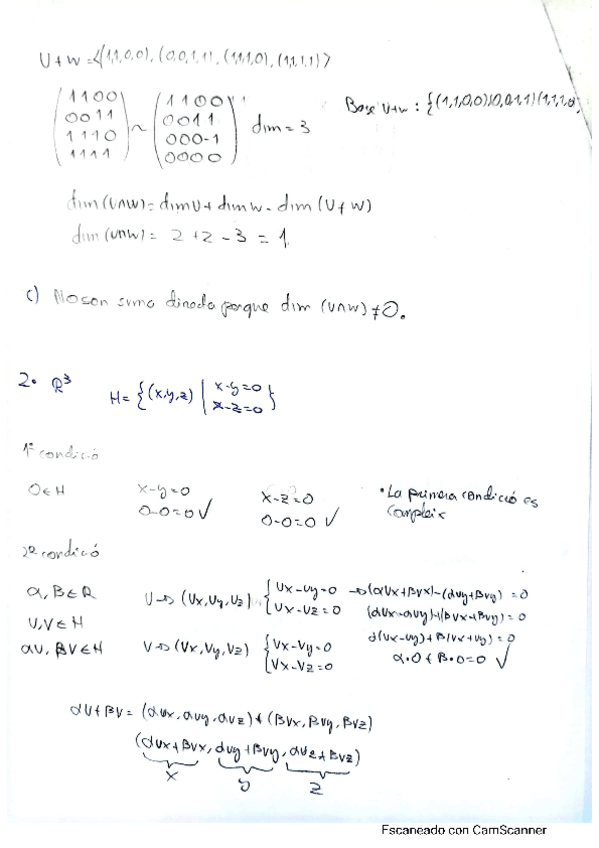 U+W=<(1,1,0,0), (0,0,1,1), (1,1,1,0), (1,1,1,1)>
(1 1 0 0 / 0 0 1 1 / 1 1 1 0 / 1 1 1 1) ~ (1 1 0 0 / 0 0 1 1 / 0 0 0 -1 / 0 0 0 0) dim = 3
Base U+W : {(1,1,0,0)(0,0,1,1)(1,1,1,0)
dim (U∩W)= dim U + dim W - dim (U+W)
dim (U∩W) = 2 + 2 - 3 = 1
c) No son suma directa porque dim (U∩W) ≠ 0.
2. R³ H= {(x,y,z) | x-y=0
x-z=0 }
1ª condició
0∈H x-y=0 x-z=0 • La primera condició es
0-0=0 ✓ 0-0=0 ✓ compleix
2ª condició
α, β∈R U→(Ux,Uy,Uz) { Ux-Uy=0 → (αUx+βVx)-(αUy+βVy) = 0
U,V∈H Ux-Uz=0 (αUx-αUy)+(βVx+βVy) = 0
αU, βV∈H V→(Vx,Vy,Vz) { Vx-Vy=0 α(Ux-Uy)+β(Vx+Vy) = 0
Vx-Vz=0 α·0+β·0=0 ✓
αU+βV= (αUx, αUy, αUz)+(βVx, βVy, βVz)
(αUx+βVx, αUy+βVy, αUz+βVz)
x y z
Escaneado con CamScanner